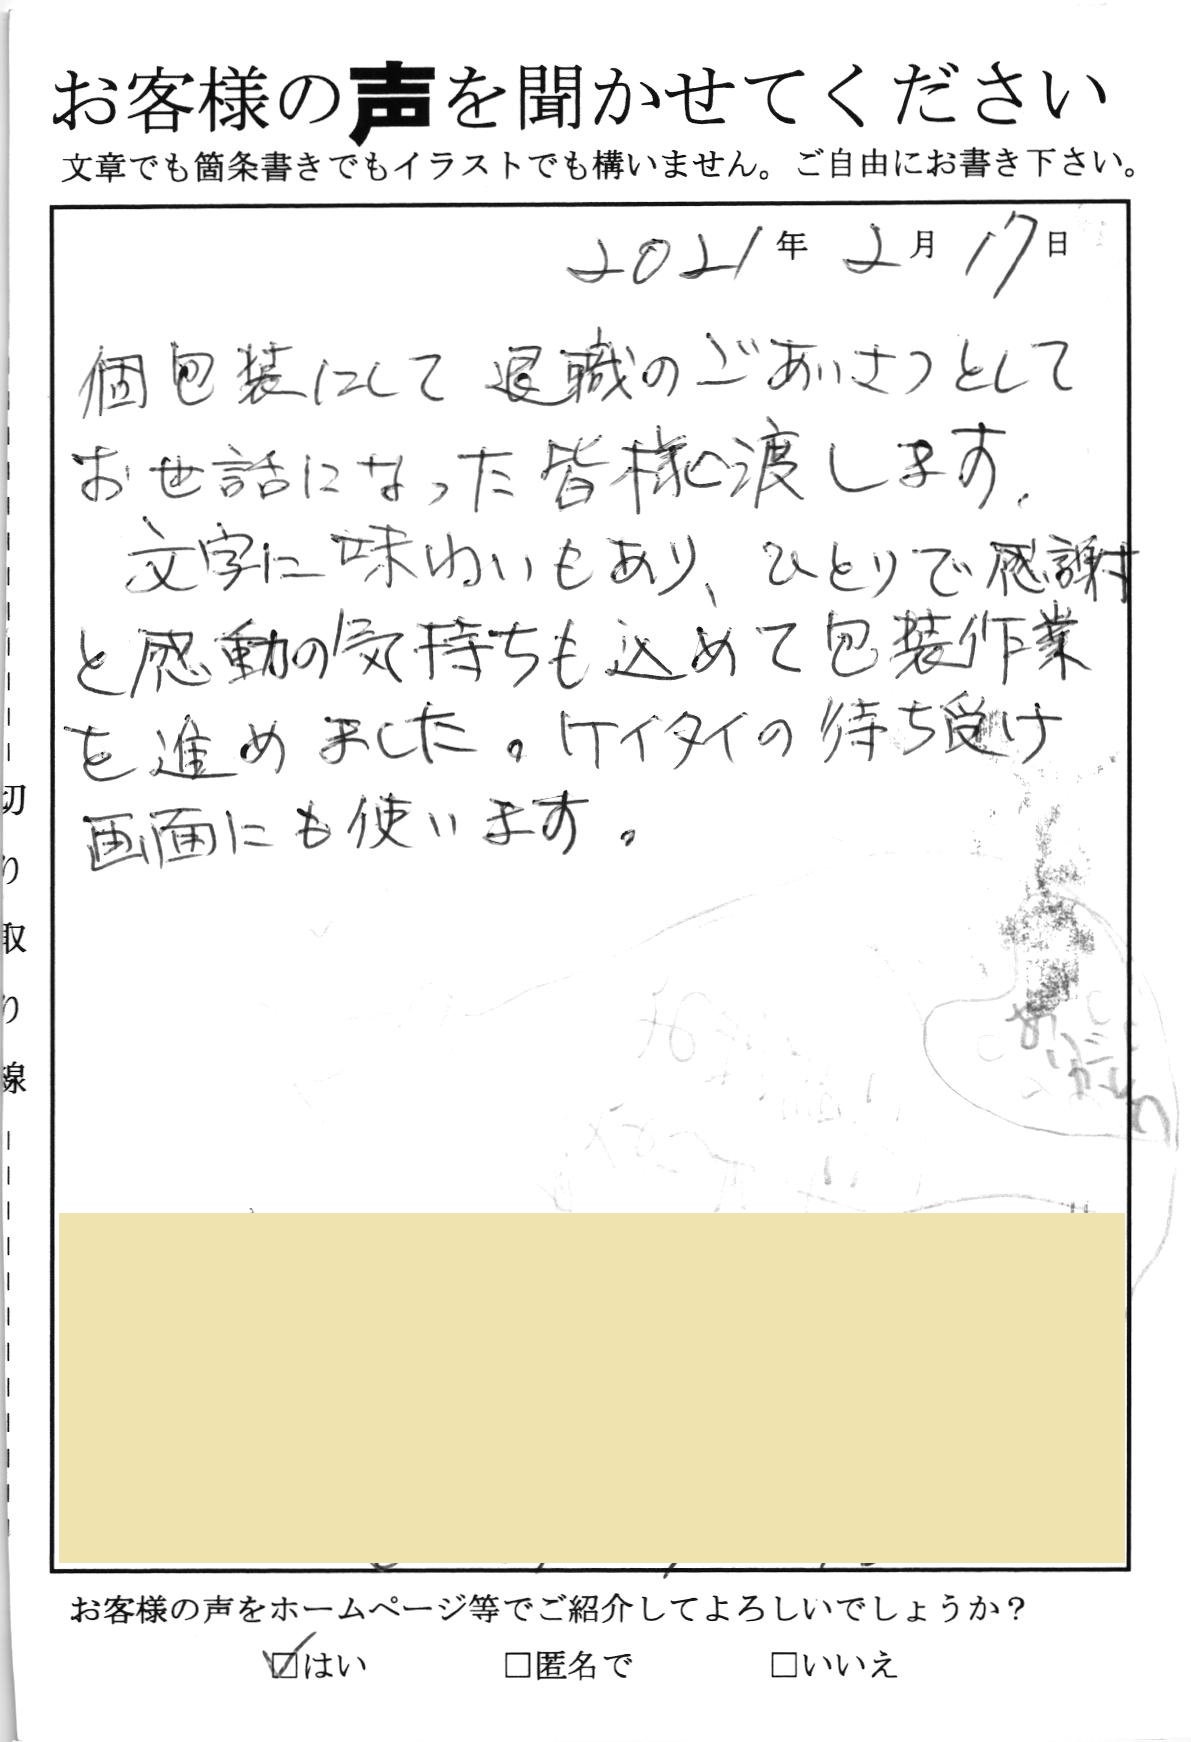 お客様の声を聞かせてください
文章でも箇条書きでもイラストでも構いません。ご自由にお書き下さい。
2021年2月17日
個包装にして退職のごあいさつとして
お世話になった皆様へ渡します。
文字に味わいもあり、ひとりで感謝
と感動の気持ちも込めて包装作業
を進めました。ケイタイの待ち受け
画面にも使います。
切り取り線
お客様の声をホームページ等でご紹介してよろしいでしょうか？
☑はい □匿名で □いいえ